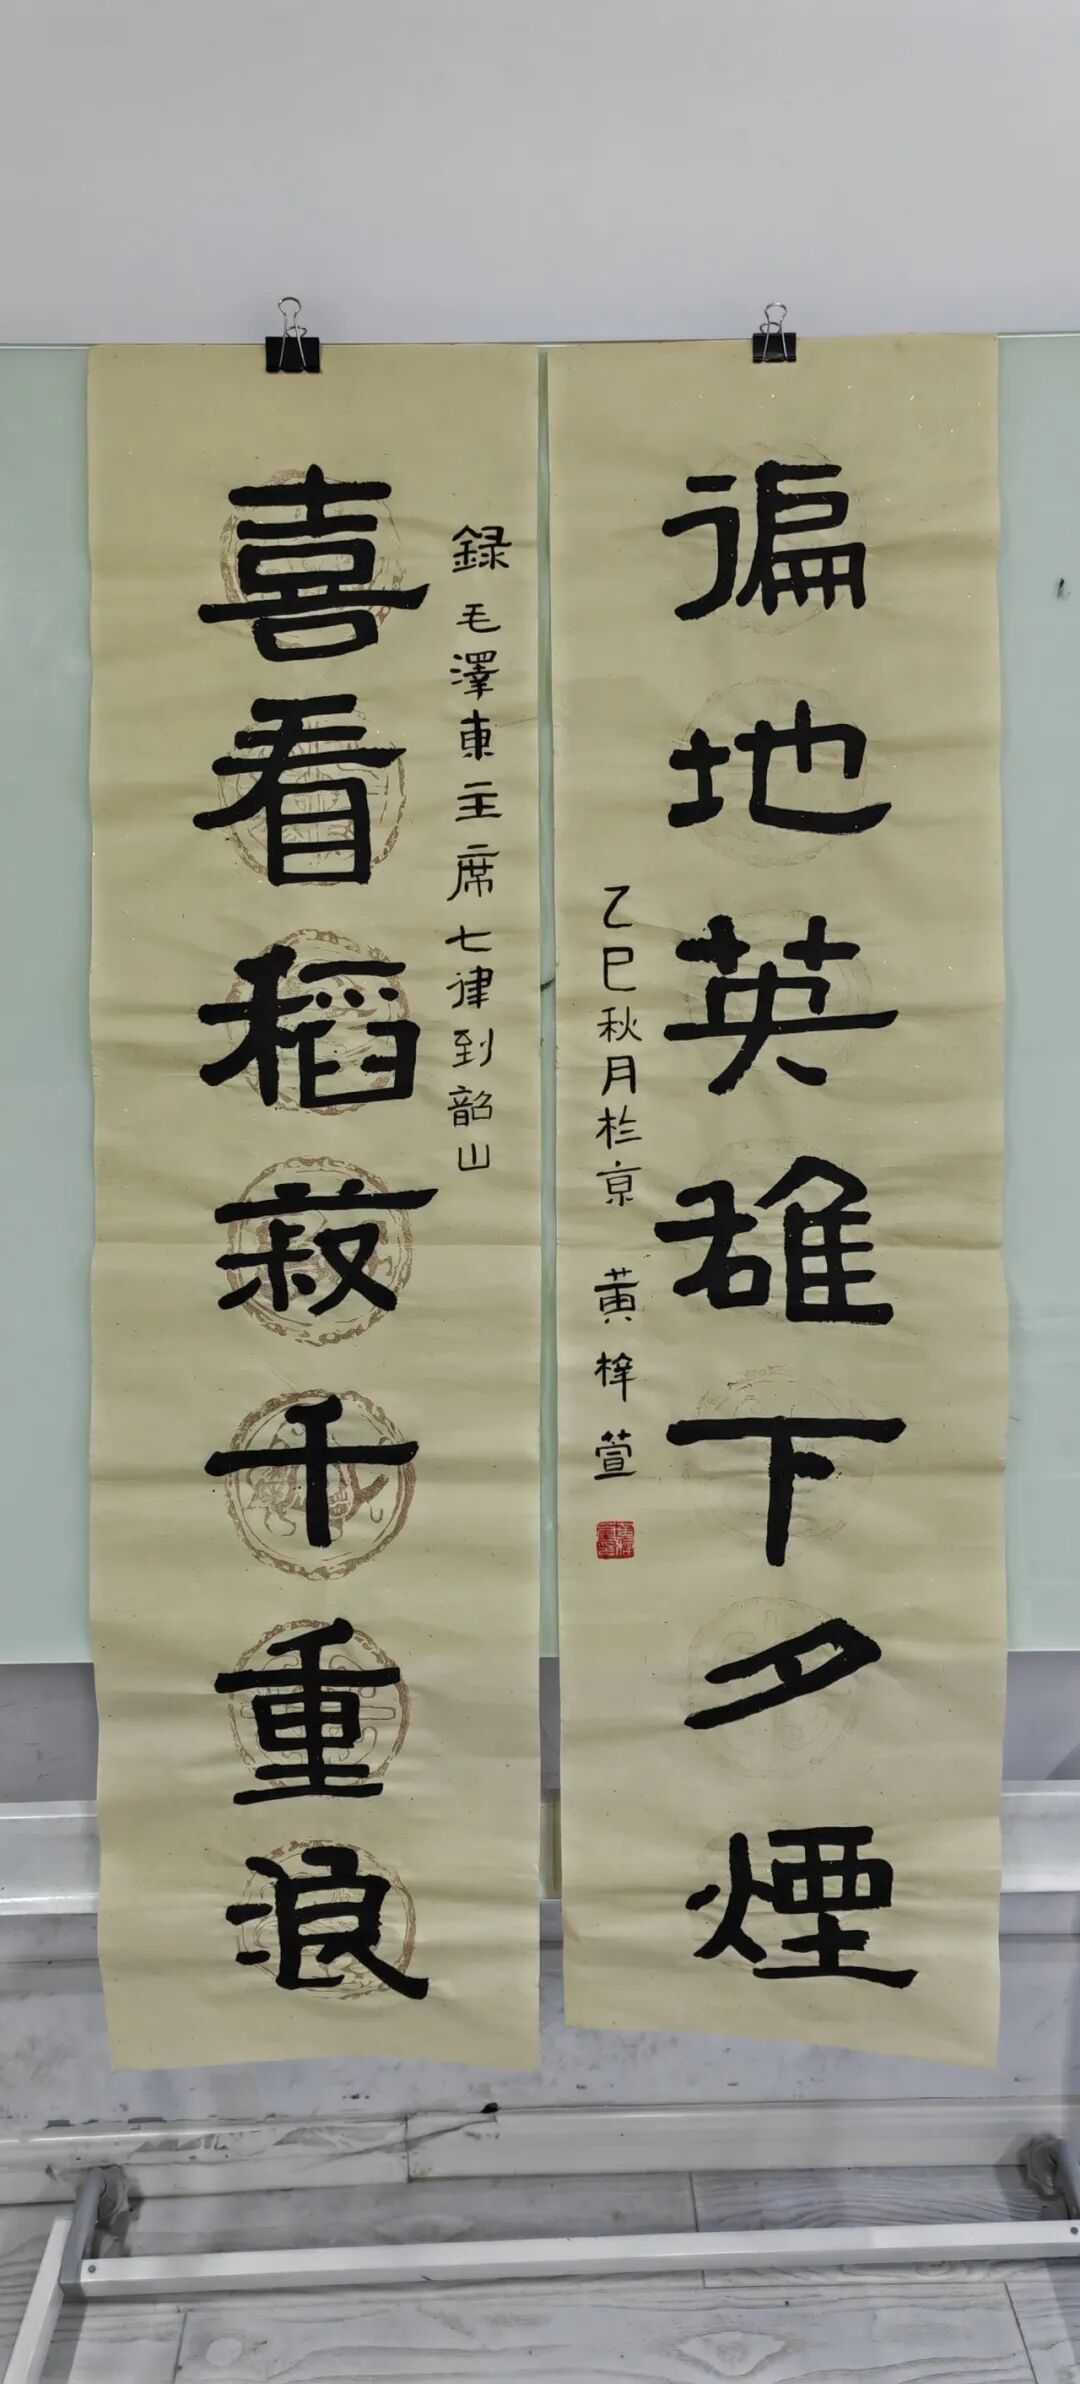 録毛澤東主席七律到韶山
喜看稻菽千重浪
徧地英雄下夕煙
乙巳秋月於京 黃梓萱